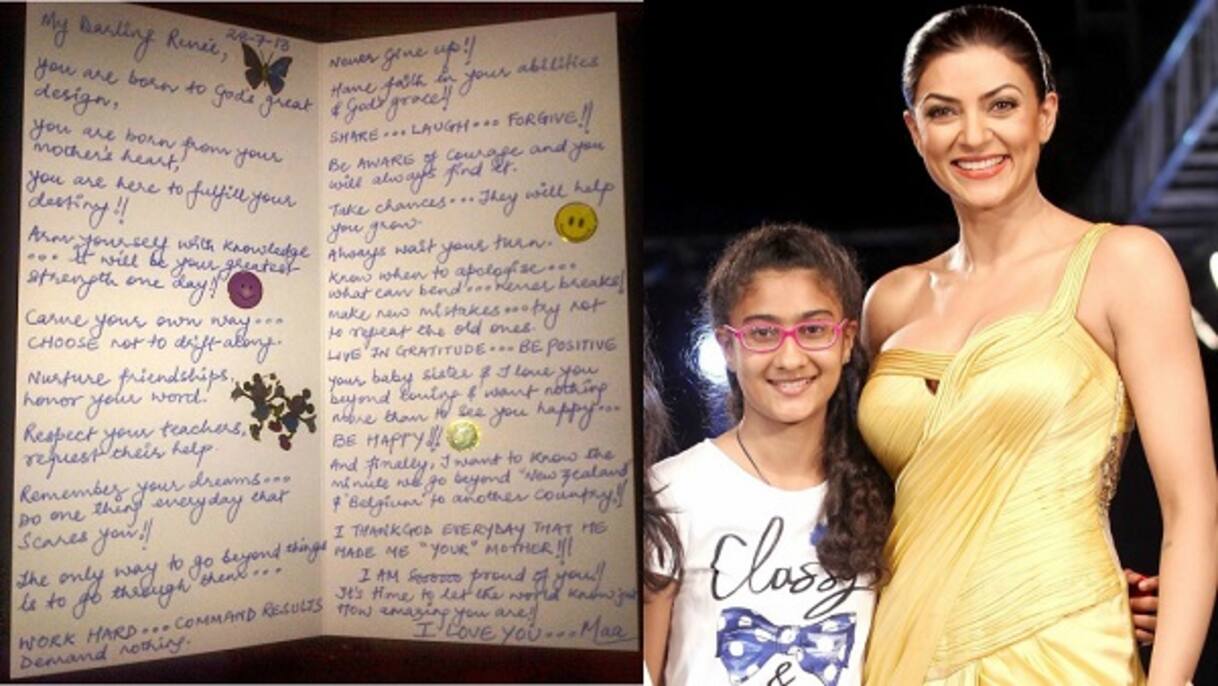 My Darling Renée,
28-7-13
you are born to God's great
design,
you are born from your
mother's heart,
you are here to fulfill your
destiny!!
Arm yourself with knowledge
... it will be your greatest
strength one day!!
Carve your own way...
CHOOSE not to drift along.
Nurture friendships,
honor your word.
Respect your teachers,
request their help.
Remember your dreams...
Do one thing everyday that
Scares you!!
The only way to go beyond things
is to go through them...
WORK HARD... COMMAND RESULTS
Demand nothing.
Never give up!!
Have faith in your abilities
& God's grace!!
SHARE... LAUGH... FORGIVE!!
Be AWARE of courage and you
will always find it.
Take chances... They will help
you grow.
Always wait your turn.
Know when to apologise...
what can bend... never breaks!
make new mistakes... try not
to repeat the old ones.
LIVE IN GRATITUDE... BE POSITIVE
your baby sister & I love you
beyond loving & want nothing
more than to see you happy...
BE HAPPY!!!
And finally, I want to know the
minute we go beyond "New Zealand"
& "Belgium" to another country!!
I THANK GOD EVERYDAY THAT HE
MADE ME "YOUR" MOTHER!!!
I AM Soooooo proud of you!!
It's time to let the world know just
How amazing you are!!
I LOVE YOU... Maa
Classy
&